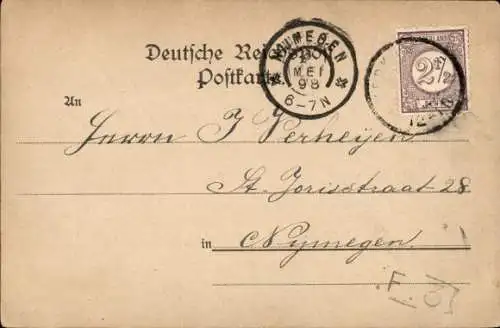 Deutsche Reichspost
Postkarte
NIJMEGEN
MEI
98
6-7N
2½
An
Herrn J Verheijen
St. Jorisstraat 28
in Nijmegen